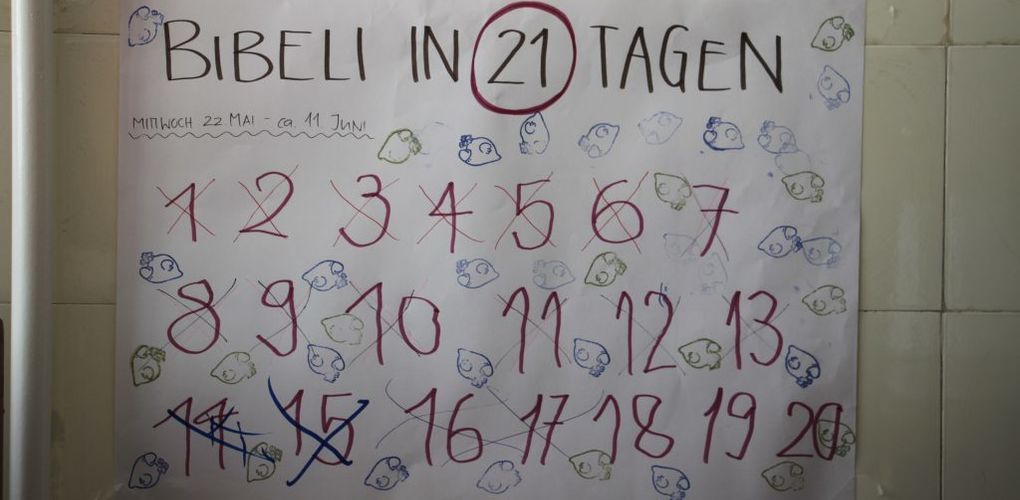 BIBELI IN 21 TAGEN
MITTWOCH 22 MAI - ca. 11. JUNI
1 2 3 4 5 6 7
8 9 10 11 12 13
14 15 16 17 18 19 20